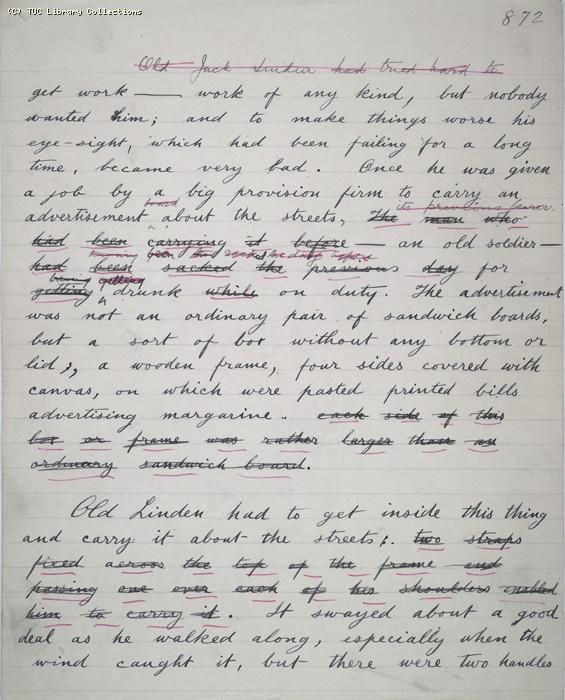 (C) TUC Library Collections
872
Old Jack Linden had tried hard to
get work — work of any kind, but nobody
wanted him; and to make things worse his
eye-sight, which had been failing for a long
time, became very bad. Once he was given
a job by a big provision firm to carry an
board its previous bearer
advertisement about the streets, The man who
had been carrying it before — an old soldier —
having been sacked the day before
had been sacked the previous day for
being getting
getting drunk while on duty. The advertisement
was not an ordinary pair of sandwich boards,
but a sort of box without any bottom or
lid, a wooden frame, four sides covered with
canvas, on which were pasted printed bills
advertising margarine. each side of this
box or frame was rather larger than an
ordinary sandwich board.
Old Linden had to get inside this thing
and carry it about the streets; two straps
fixed across the top of the frame and
passing one over each of his shoulders enabled
him to carry it. It swayed about a good
deal as he walked along, especially when the
wind caught it, but there were two handles